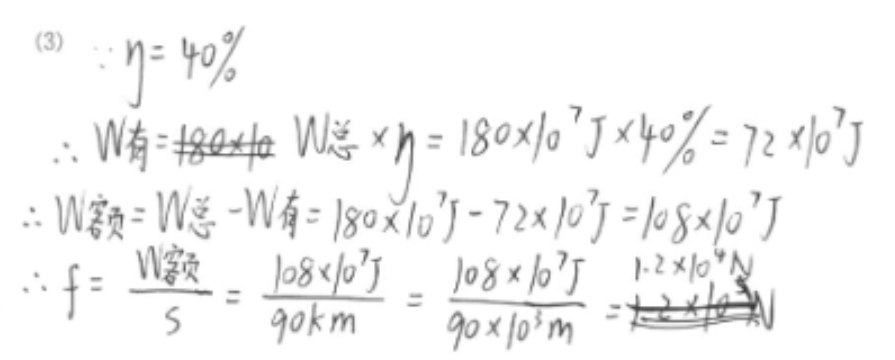 (3) ∵ η = 40%
∴ W有 = W总 × η = 180×10⁷J × 40% = 72×10⁷J
∴ W额 = W总 - W有 = 180×10⁷J - 72×10⁷J = 108×10⁷J
∴ f = W额/s = 108×10⁷J/90km = 108×10⁷J/90×10³m = 1.2×10⁴N